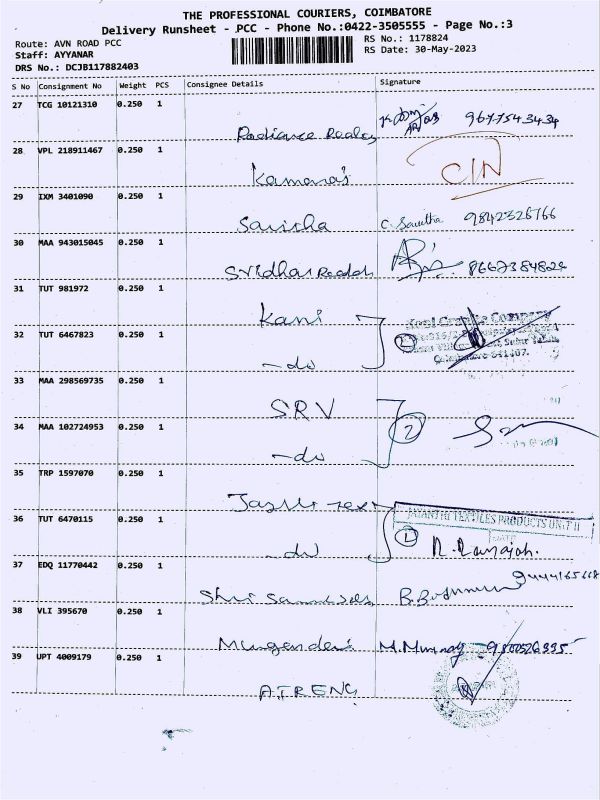 THE PROFESSIONAL COURIERS, COIMBATORE
Delivery Runsheet - PCC - Phone No.:0422-3505555 - Page No.:3
Route: AVN ROAD PCC
RS No.: 1178824
Staff: AYYANAR
RS Date: 30-May-2023
DRS No.: DCJB117882403
S No Consignment No Weight PCS Consignee Details Signature
27 TCG 10121310 0.250 1
Radiance Realty 9677543434
28 VPL 218911467 0.250 1
Kamaras CIN
29 IXM 3401090 0.250 1
Saritha C. Savitha 9842326766
30 MAA 943015045 0.250 1
Sridhar 8667384824
31 TUT 981972 0.250 1
Kani Company
32 TUT 6467823 0.250 1
-do Coimbatore 641407.
33 MAA 298569735 0.250 1
SRV
34 MAA 102724953 0.250 1
-do 2
35 TRP 1597070 0.250 1
Tex
JAYANTHI TEXTILES PRODUCTS UNIT II
36 TUT 6470115 0.250 1
DATE
-do R. Ramajoh.
37 EDQ 11770442 0.250 1
Shri
38 VLI 395670 0.250 1
39 UPT 4009179 0.250 1